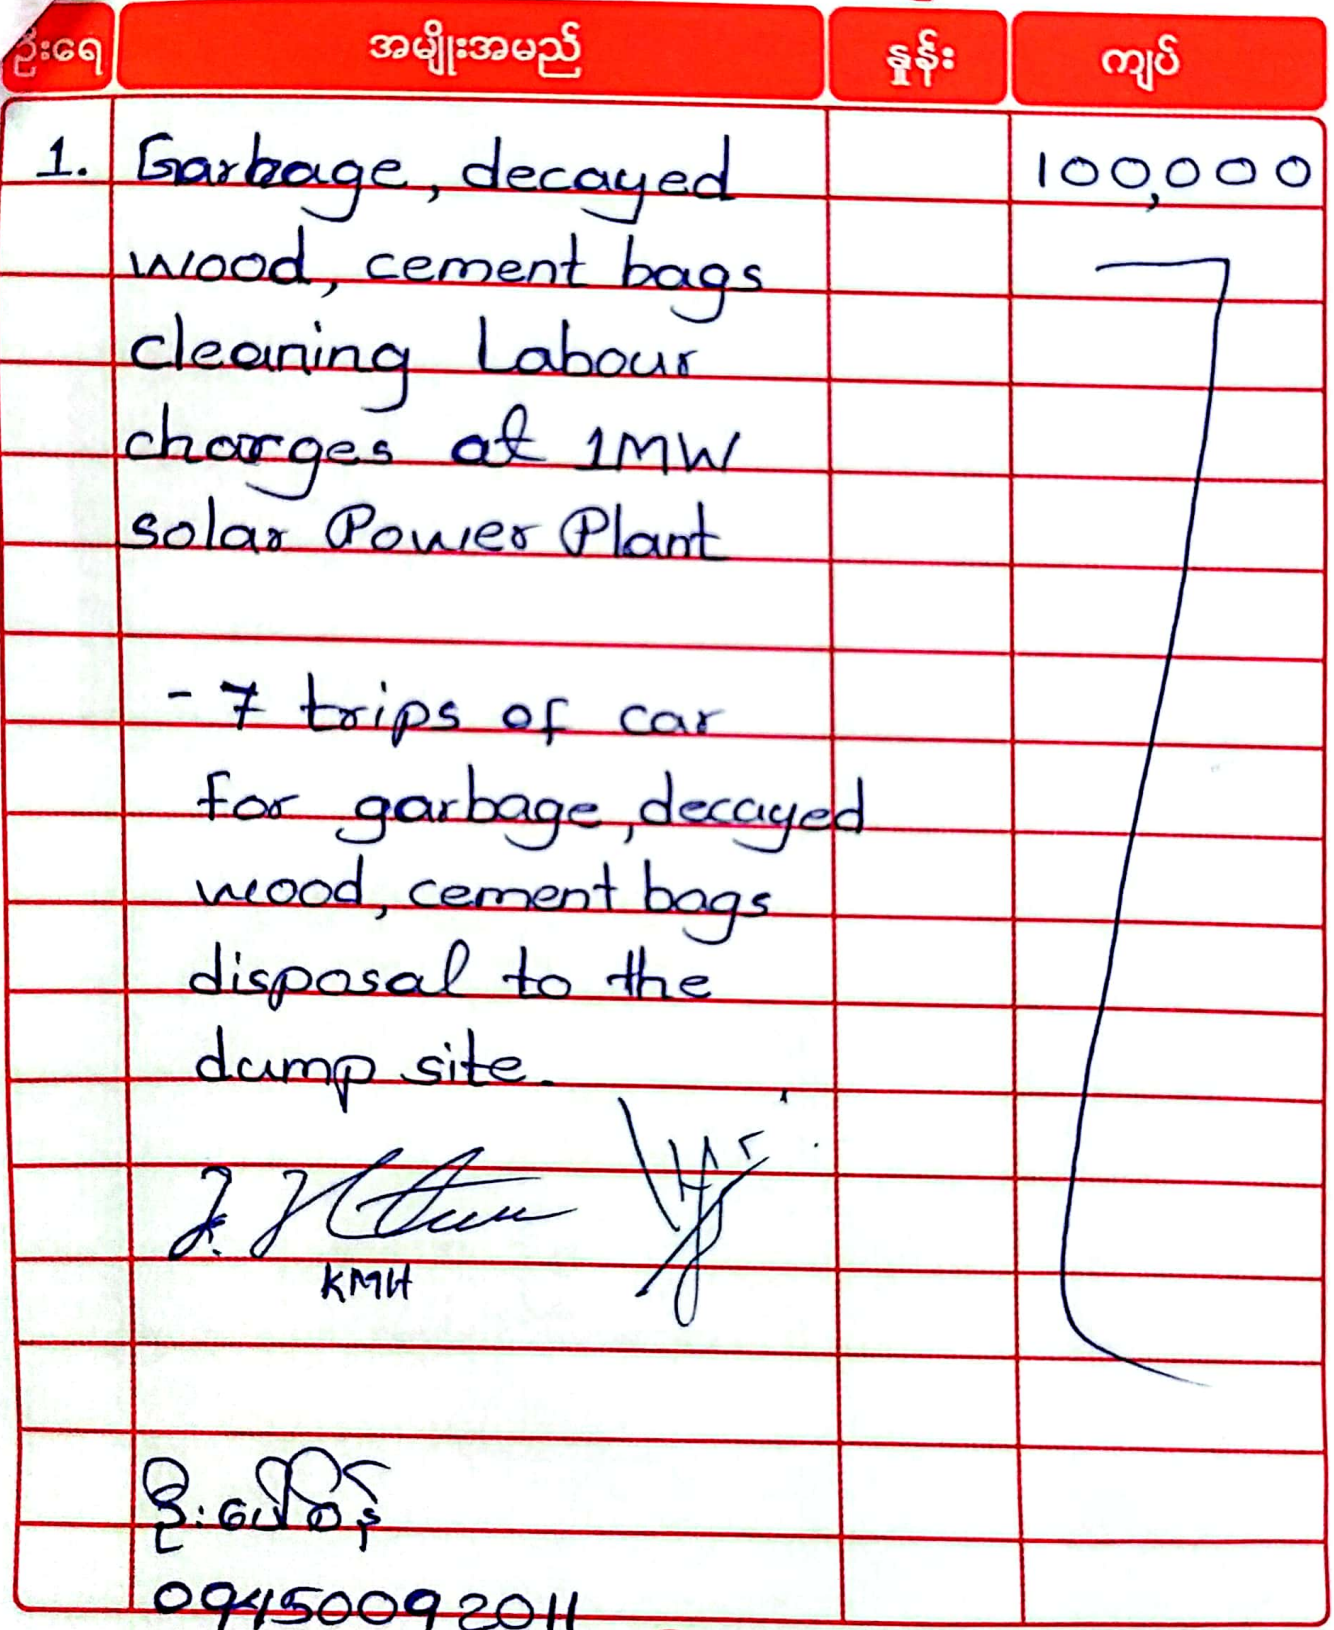 ဦးရေ အမျိုးအမည် နှုန်း ကျပ်
1. Garbage, decayed 100,000
wood, cement bags
cleaning Labour
charges at 1MW
solar Power Plant
- 7 trips of car
for garbage, decayed
wood, cement bags
disposal to the
dump site.
KMH
ဦးပေါ်စိန်
09450092011